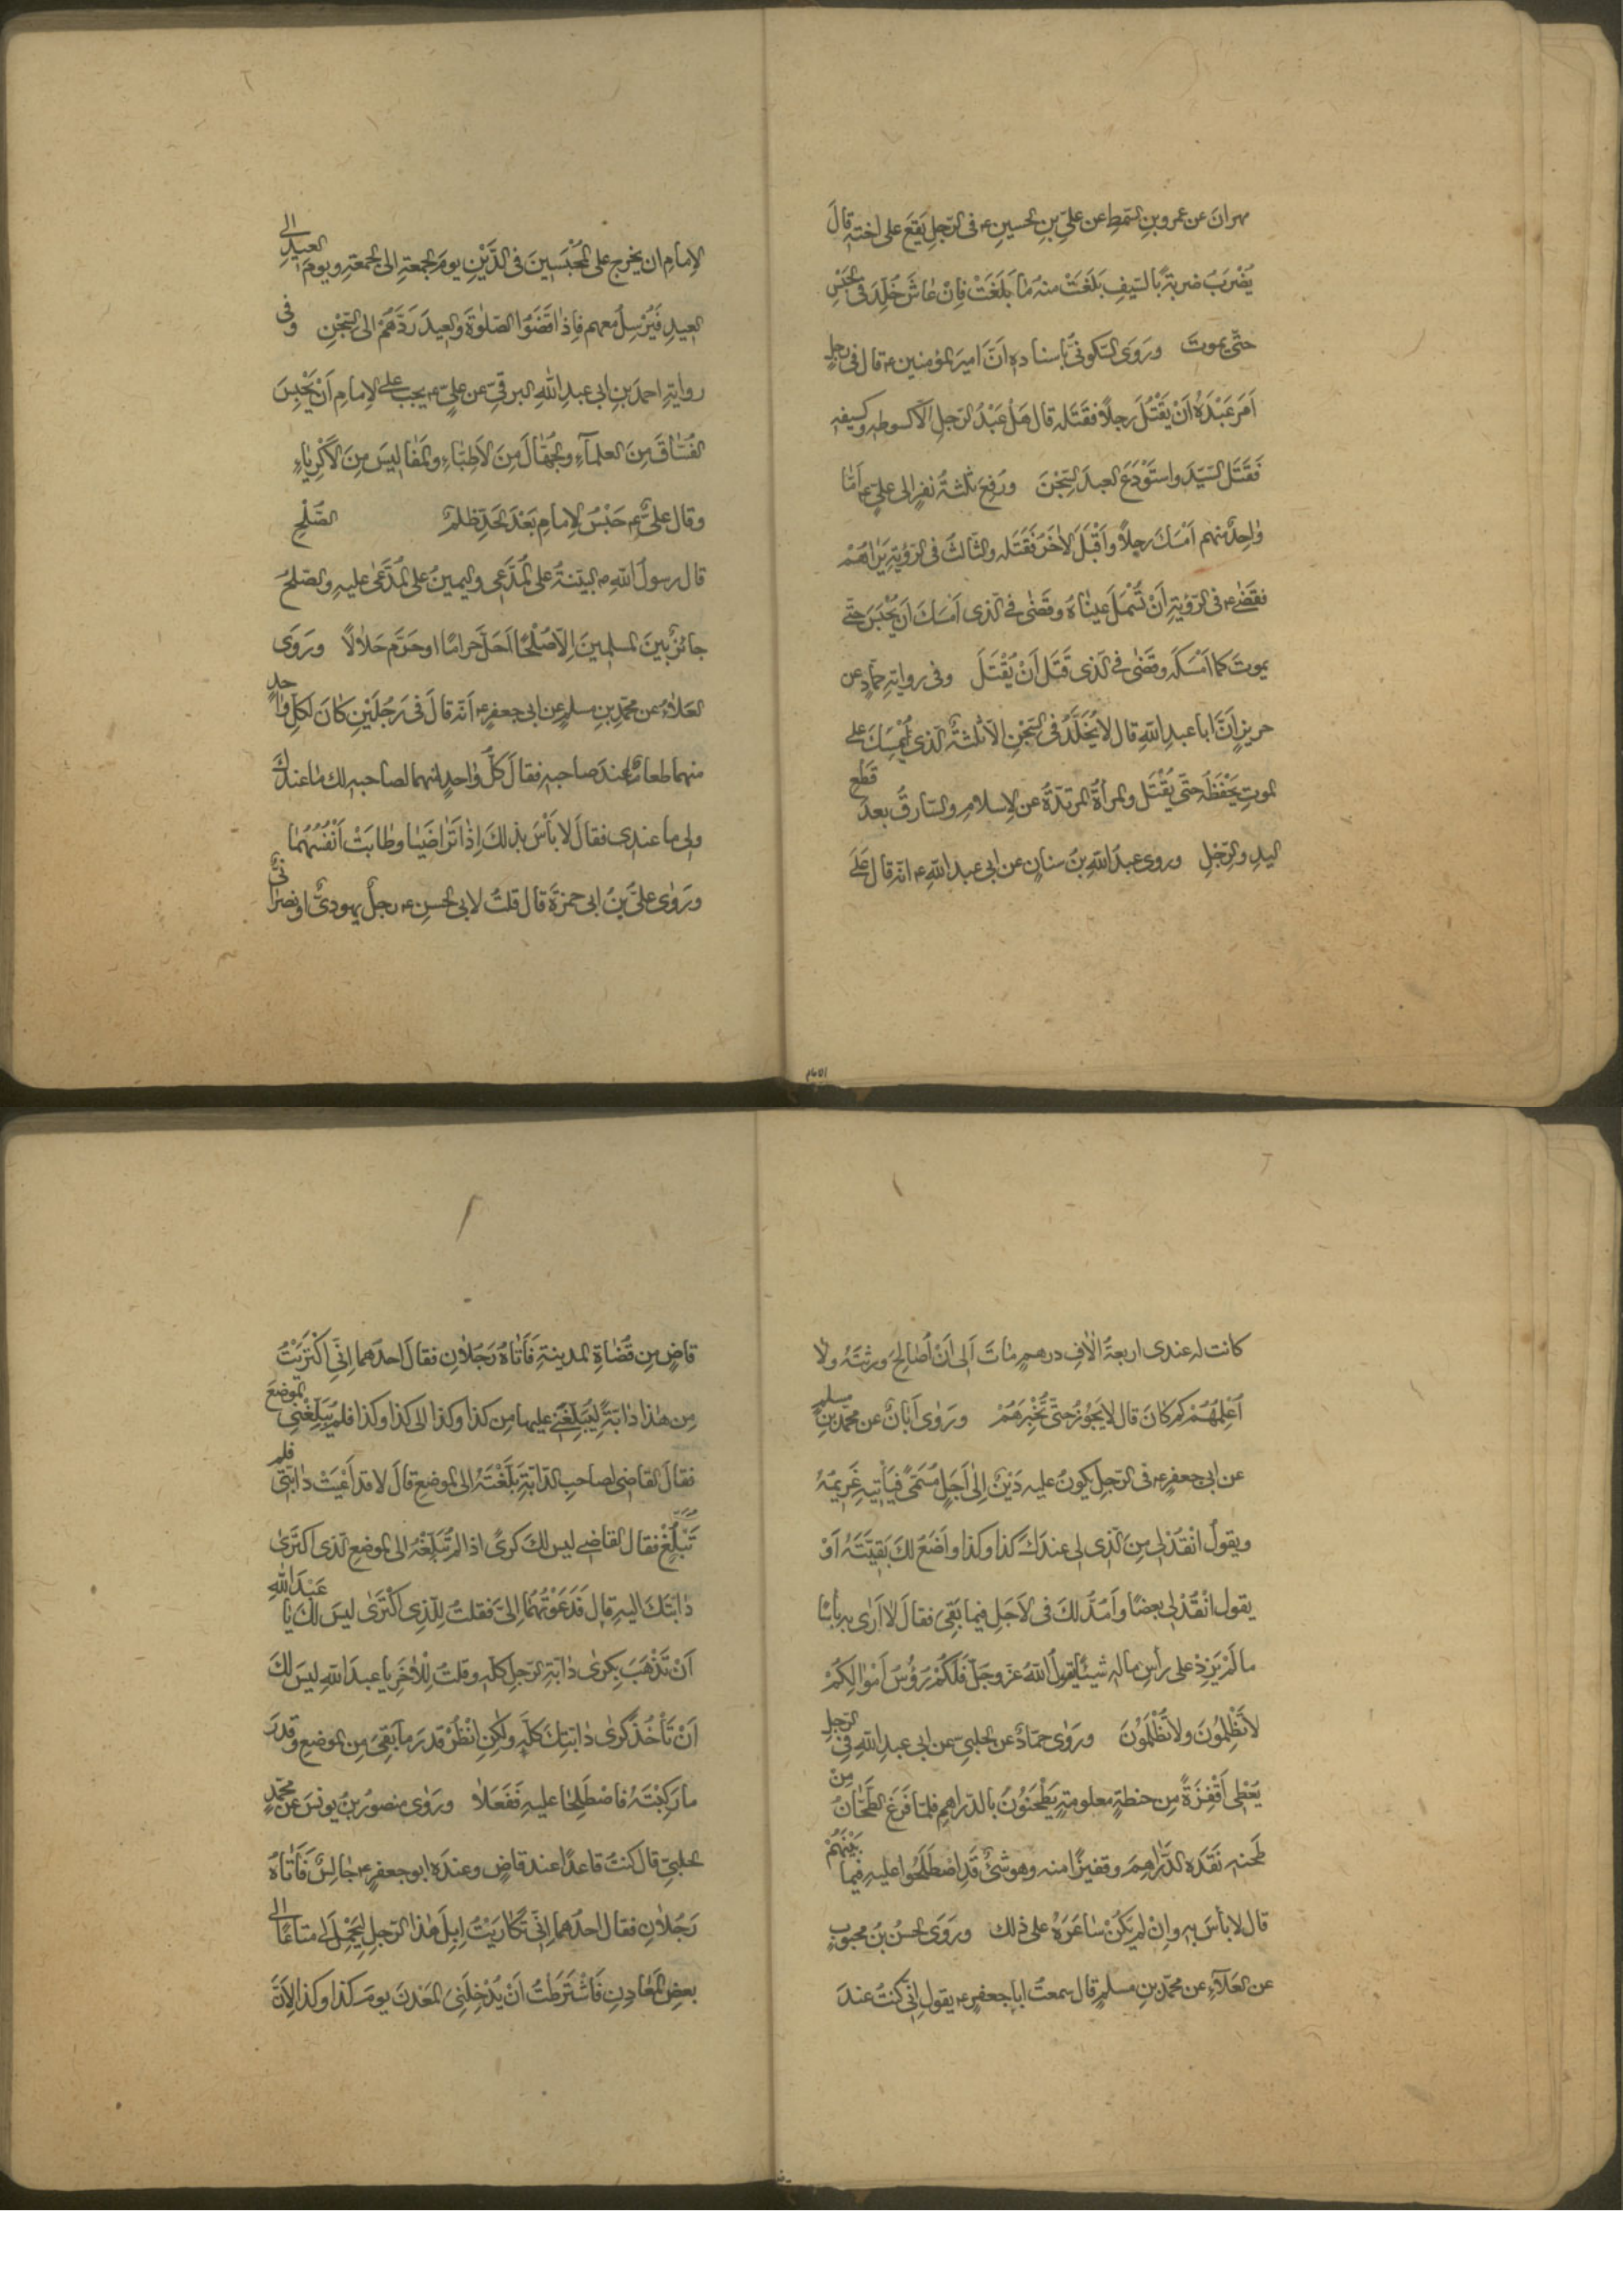 مهرانَ عن عمرو بنِ السّمطِ عن عليِّ بنِ الحسينِ ع فى الرّجلِ يَقَعُ على اختهِ قالَ
يُضْرَبُ ضربةً بالسّيفِ بَلَغَتْ منه مٰا بَلَغَتْ فاِنْ عٰاشَ خُلِّدَ فى الحَبْسِ
حتّىٰ يموتَ ورَوَى السّكونىُّ باسنادهِ اَنَّ اميرَ المؤمنين ع قال فى رجلٍ
اَمَرَ عَبْدَهُ اَنْ يَقْتُلَ رجلاً فقَتَلَه قال هَلْ عَبْدُ الرّجلِ الّا كسوطهِ وكسيفهِ
فَقَتَلَ السّيّدَ واستَوْدَعَ العبدَ السّجْنَ ورُفِعَ ثلثةُ نفرٍ الى علىٍّ ع امّا
وٰاحِدٌ منهم اَمْسَكَ رجلاً واَقْبَلَ الاٰخَرُ فَقَتَلَه والثّالثُ فى الرّؤيةِ يَرٰاهُمْ
فقَضٰى ع فى الرّؤيةِ اَنْ تُسْمَلَ عينٰاهُ وقَضٰى فى الّذى اَمْسَكَ اَن يُحْبَسَ حتّى
يموتَ كما اَمْسَكَه وقَضٰى فى الّذى قَتَلَ اَنْ يُقْتَلَ وفى روايةِ حمّادٍ عن
حريزٍ اَنَّ ابا عبدِ اللّهِ قال لا يُخَلَّدُ فى السّجْنِ الّا ثلثةٌ الّذى يُمْسِكُ على
الموتِ يَحْفَظُه حتّى يُقْتَلَ والمرأةُ المرتدّةُ عن الاِسلامِ والسّارقُ بعدَ قَطْعِ
اليدِ والرّجلِ وروى عبدُ اللّهِ بنُ سنانٍ عن ابى عبدِ اللّهِ ع انّه قال عَلَى
الاِمامِ ان يخرج على المُحْبَسِينَ فى الدَّيْنِ يومَ الجمعةِ الى الجمعةِ ويومَ العيدِ الى
العيدِ فَيُرْسِلُ معهم فاِذٰا قَضَوُا الصّلوٰةَ والعيدَ رَدَّهُمْ الى السّجْنِ وفى
روايةِ احمدَ بنِ ابى عبدِ اللّهِ البرقىِّ عن علىٍّ ع يجب على الاِمامِ اَنْ يَحْبِسَ
الفُسّٰاقَ مِنَ العلمآءِ والجُهّٰالَ مِنَ الاَطِبّٰاءِ والمَفٰاليسَ مِنَ الاَكْرِيٰاءِ
وقال علىٌّ ع حَبْسُ الاِمامِ بَعْدَ الحَدِّ ظلمٌ الصّلْحِ
قال رسولُ اللّهِ ص البيّنةُ على المُدَّعِى واليمينُ على المُدَّعىٰ عليهِ والصّلحُ
جائزٌ بينَ المسلمينَ اِلّا صُلْحًا اَحَلَّ حرامًا او حَرَّمَ حَلاٰلاً ورَوَى
العَلاٰءُ عن محمّدِ بنِ مسلمٍ عن ابى جعفرٍ ع انّه قالَ فى رَجُلَيْنِ كٰانَ لكلِّ وٰاحدٍ
منهما طعامٌ عندَ صاحبهِ فقالَ كلُّ وٰاحدٍ منهما لصاحبهِ لك مٰا عندك
ولى ما عندى فقالَ لا بأسَ بذلكَ اِذٰا تَرٰاضَيٰا وطٰابَتْ اَنْفُسُهُمٰا
ورَوٰى علىُّ بنُ ابى حمزةَ قال قلتُ لابى الحسنِ ع رجلٌ يهودىٌّ او نصرٰانىٌّ
كانت له عندى اربعةُ اٰلاٰفِ درهمٍ مٰاتَ اَلِى اَنْ اُصٰالِحَ ورثَتَهُ ولا
اُعْلِمُهُمْ كم كانَ قال لا يَجُوزُ حتّىٰ تُخْبِرَهُمْ ورَوٰى اَبٰانٌ عن محمّدِ بنِ مسلمٍ
عن ابى جعفرٍ ع فى الرّجلِ يكونُ عليه دَيْنٌ اِلٰى اَجَلٍ مُسَمًّى فيَأتيهِ غَرِيمُهُ
ويقولُ انْقُدْ لى مِنَ الّذى لى عندَكَ كذا وكذا واَضَعُ لكَ بَقِيَّتَهُ اَوْ
يقولُ انْقُدْ لى بعضًا واَمُدُّ لكَ فى الاَجَلِ فيما بَقِىَ فقالَ لاٰ اَرٰى بهِ بأسًا
ما لَمْ يَزِدْ على رأسِ مالهِ شيئًا يقولُ اللّهُ عزّ وجَلَّ فَلَكُمْ رَؤُسُ اَمْوٰالِكُمْ
لاٰ تَظْلِمُونَ ولاٰ تُظْلَمُونَ ورَوٰى حمّادٌ عن الحلبىِّ عن ابى عبدِ اللّهِ فى الرّجلِ
يُعْطِى اَقْفِزَةً مِن حنطةٍ معلومةٍ يَطْحَنُونَ بالدّراهمِ فلمّا فَرَغَ الطّحّانُ مِنْ
طَحنهِ نَقَدَه الدَّرٰاهِمَ وقفيزًا منه وهو شئٌ قَدِ اصْطَلَحُوا عليهِ فيما بَيْنَهُمْ
قال لا بأسَ بهِ واِنْ لم يَكُنْ سٰاعَرَهُ على ذٰلك ورَوَى الحسنُ بنُ محبوبٍ
عن العَلآءِ عن محمّدِ بنِ مسلمٍ قال سمعتُ ابا جعفرٍ ع يقول انّى كنتُ عندَ
قاضٍ مِن قُضٰاةِ المدينةِ فَاَتٰاهُ رَجُلاٰنِ فقالَ احدُهما اِنّى اكْتَرَيْتُ
مِن هٰذا دٰابّةً لِيُبَلِّغَنِى عليها مِن كذا وكذا الى كذا وكذا فلم يُبَلِّغْنِى الموضعَ
فقالَ القاضى لصاحبِ الدّابّةِ بَلَّغْتَهُ الى الموضعِ قالَ لا قد اَعْيَتْ دٰابّتى فلم
تَبْلُغْ فقال القاضى ليس لكَ كرىً اذا لم تُبَلِّغْهُ الى الموضعِ الّذى اكتَرىٰ
دٰابّتَكَ اليهِ قال فَدَعَوْتُهُمٰا اِلىَّ فقلتُ لِلّذِى اكْتَرٰى ليسَ لَكَ يٰا عَبْدَ اللّٰهِ
اَنْ تَذْهَبَ بِكِرىٰ دٰابّةِ الرّجلِ كلّهِ وقلتُ لِلْاٰخَرِ يا عبدَ اللّهِ ليسَ لكَ
اَنْ تَأْخُذَ كرىٰ دٰابّتِكَ كلَّه ولٰكنِ انْظُرْ قدرَ مٰا بَقِىَ مِن الموضعِ وقدرَ
ما رَكِبْتَهُ فاصْطَلِحٰا عليهِ فَفَعَلاٰ ورَوٰى منصورُ بنُ يونسَ عن محمّدٍ
الحلبىِّ قال كنتُ قاعدًا عند قاضٍ وعندَه ابو جعفرٍ ع جٰالِسٌ فَاَتٰاهُ
رَجُلاٰنِ فقال احدُهما اِنّى تَكٰارَيْتُ اِبِلَ هٰذا الرّجلِ لِيَحْمِلَ لى متاعًا الى
بعضِ المَعٰادِنِ فَاشْتَرَطْتُ اَنْ يُدْخِلَنِى المَعْدِنَ يومَ كذا وكذا لِاَنَّ